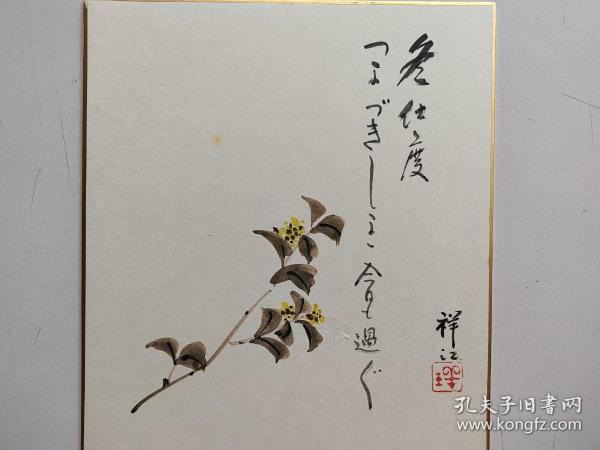 冬仕度
つまづきしまゝ今日も過ぐ
祥江
孔夫子旧书网
www.kongfz.com